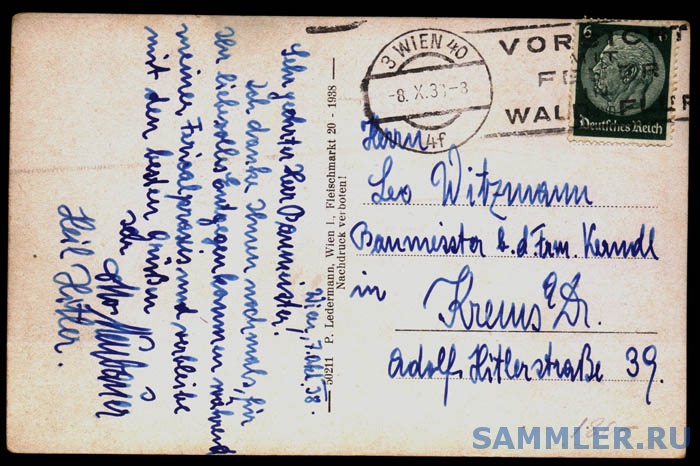 Wien, 7. Okt. 38.
Sehr geehrter Herr Baumeister!
Ich danke Ihnen nochmals, für
Ihr liebevolles Entgegenkommen während
meiner Ferialpraxis und verbleibe
mit den besten Grüßen
Otto
Heil Hitler.
50211 P. Ledermann, Wien I., Fleischmarkt 20 - 1938 —
Nachdruck verboten!
3 WIEN 40
-8.X.38-8
4f
VORSICHT
FEUER
WALD
6
Deutsches Reich
Herrn
Leo Witzmann
Baumeister b. d Frm. Kerndl
in Krems a/D.
Adolf Hitlerstraße 39.
SAMMLER.RU